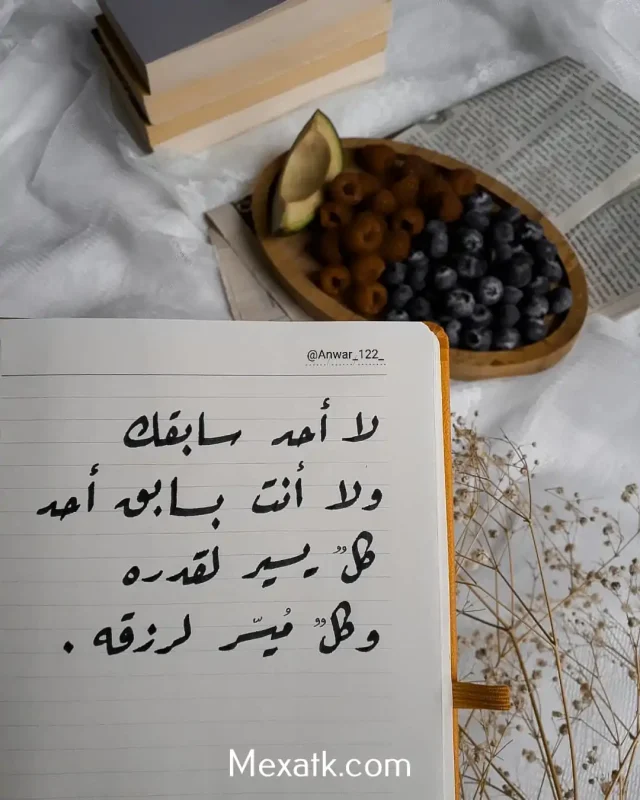 @Anwar_122_
لا أحد سابقك
ولا أنت بسابق أحد
كلٌ يسير لقدره
وكلٌ مُيسّر لرزقه .
Mexatk.com